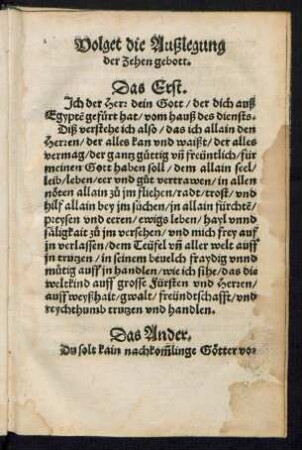 Volget die Außlegung
der Zehen gebott.
Das Erst.
Ich der Herr dein Gott / der dich auß
Egyptẽ gefürt hat / vom hauß des diensts.
Diß verstehe ich also / das ich allain den
Herren / der alles kan vnd waißt / der alles
vermag / der gantz güttig vñ freüntlich / für
meinen Gott haben soll / dem allain seel /
leib / leben / eer vnd gůt vertrawen / in allen
nöten allain zů jm fliehen / radt / trost / vnd
hilf allain bey jm sůchen / jn allain fürchtẽ /
preysen vnd eeren / ewigs leben / hayl vnnd
säligkait zů jm versehen / vnd mich frey auf
jn verlassen / dem Teüfel vñ aller welt auff
jn trutzen / in seinem beuelch fraydig vnnd
můtig auff jn handlen / wie ich sihe / das die
weltkind auff grosse Fürsten vnd Herren /
auff weyßhait / gwalt / freündtschafft / vnd
reychthumb trutzen vnd handlen.
Das Ander.
Du solt kain nachkom̃linge Götter vo-